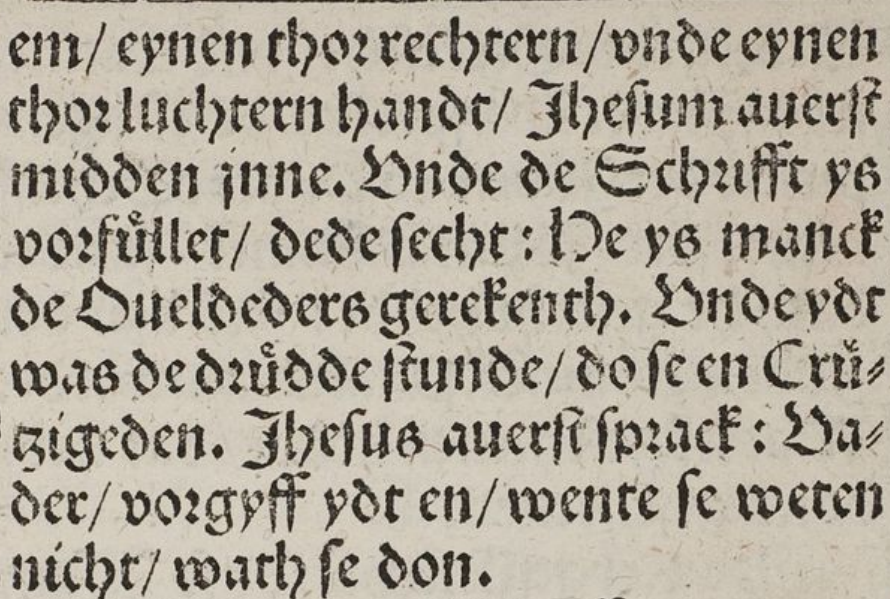 em/ eynen thor rechtern/ vnde eynen
thor luchtern handt/ Jhesum auerst
midden jnne. Vnde de Schrifft ys
vorfuͤllet/ dede secht: He ys manck
de Oueldeders gerekenth. Vnde ydt
was de druͤdde stunde/ do se en Cruͤ⸗
tzigeden. Jhesus auerst sprack: Va⸗
der/ vorgyff ydt en/ wente se weten
nicht/ wath se don.